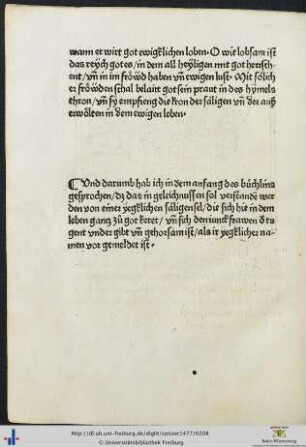 wann er wirt got ewigklichen loben. O wie lobsam ist
das reych gotes/in dem all heyligen mit got herrsch-
ent/vn̄ in im fröwd haben vn̄ ewigen lust. Mit sölich
er fröwden schal belait got sein praut in des hymels
thron/vn̄ sy empfieng die kron der säligen vn̄ der auß
erwölten in dem ewigen leben.
¶Und darumb hab ich in dem anfang des büchlins
gesprochen/dz das in geleichnussen sol verstandē wer
den von einer yegklichen säligen sel/die sich hie in dem
leben gantz zů got keret/vn̄ sich den iunckfrawen d tu
gent vnder gibt vn̄ gehorsam ist/als ir yegklicher na-
men vor gemeldet ist.
http://dl.ub.uni-freiburg.de/diglit/spitzer1477/0208
© Universitätsbibliothek Freiburg
Baden-Württemberg